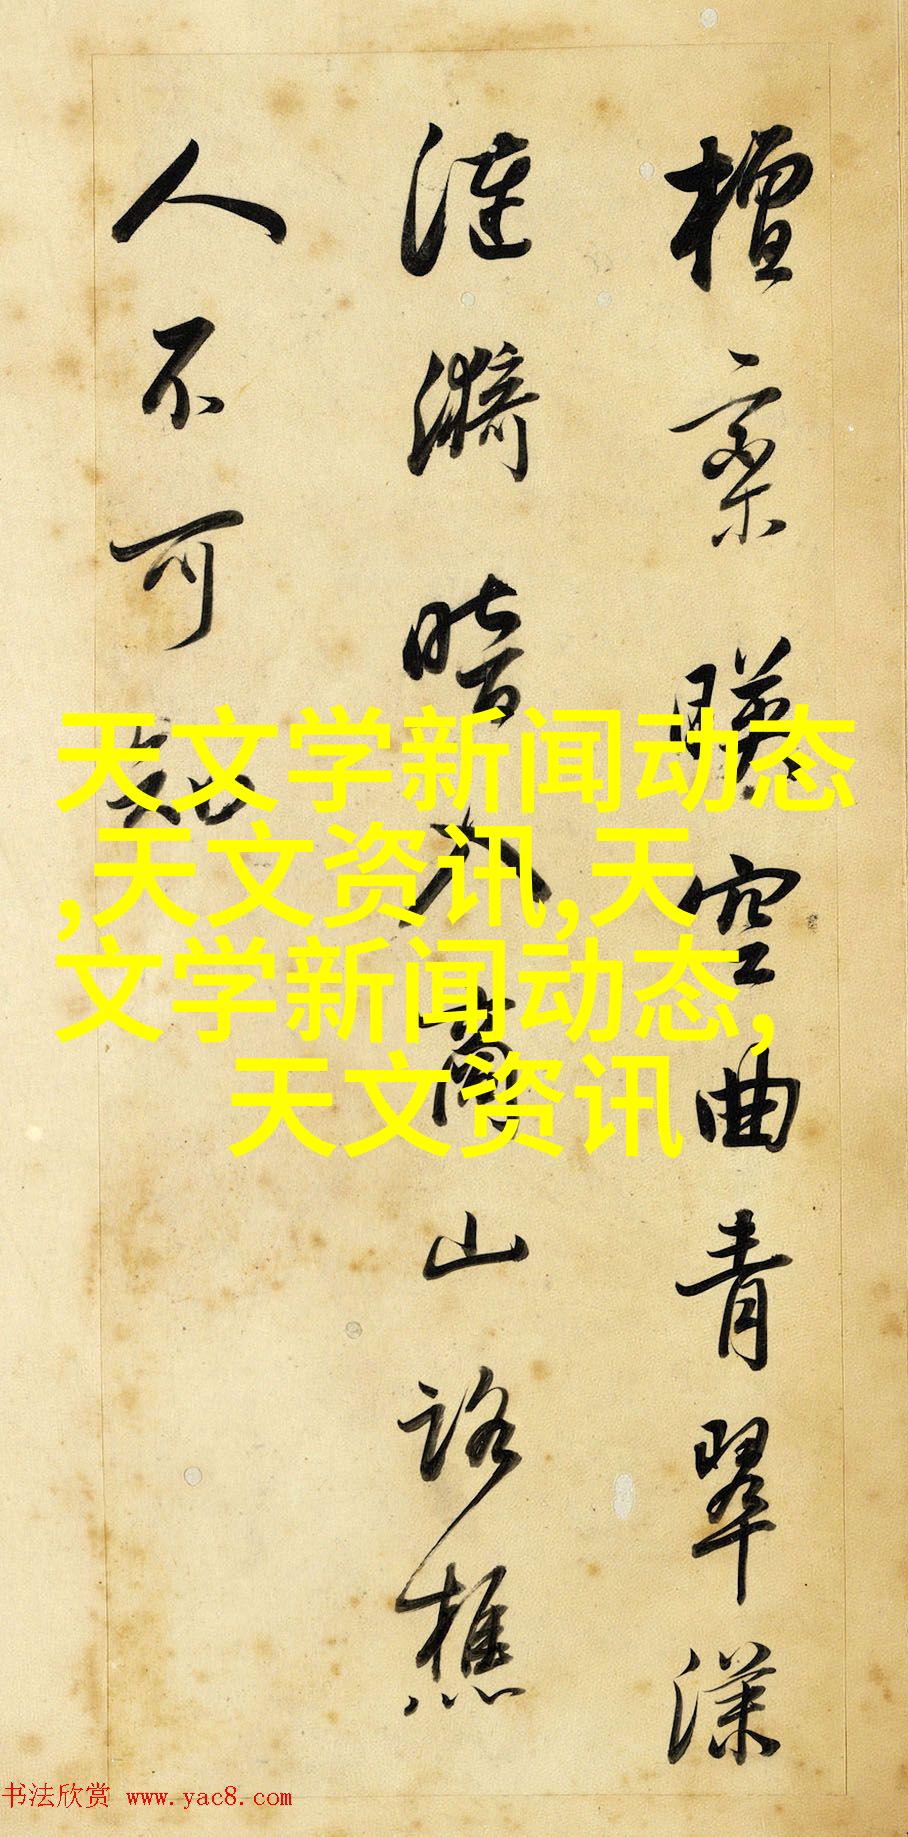 檀栾暎空曲青翠漾
涟漪暗入商山路樵
人不可知
天文学新闻动态
,天文资讯,天
文学新闻动态,
天文资讯
书法欣赏 www.yac8.com